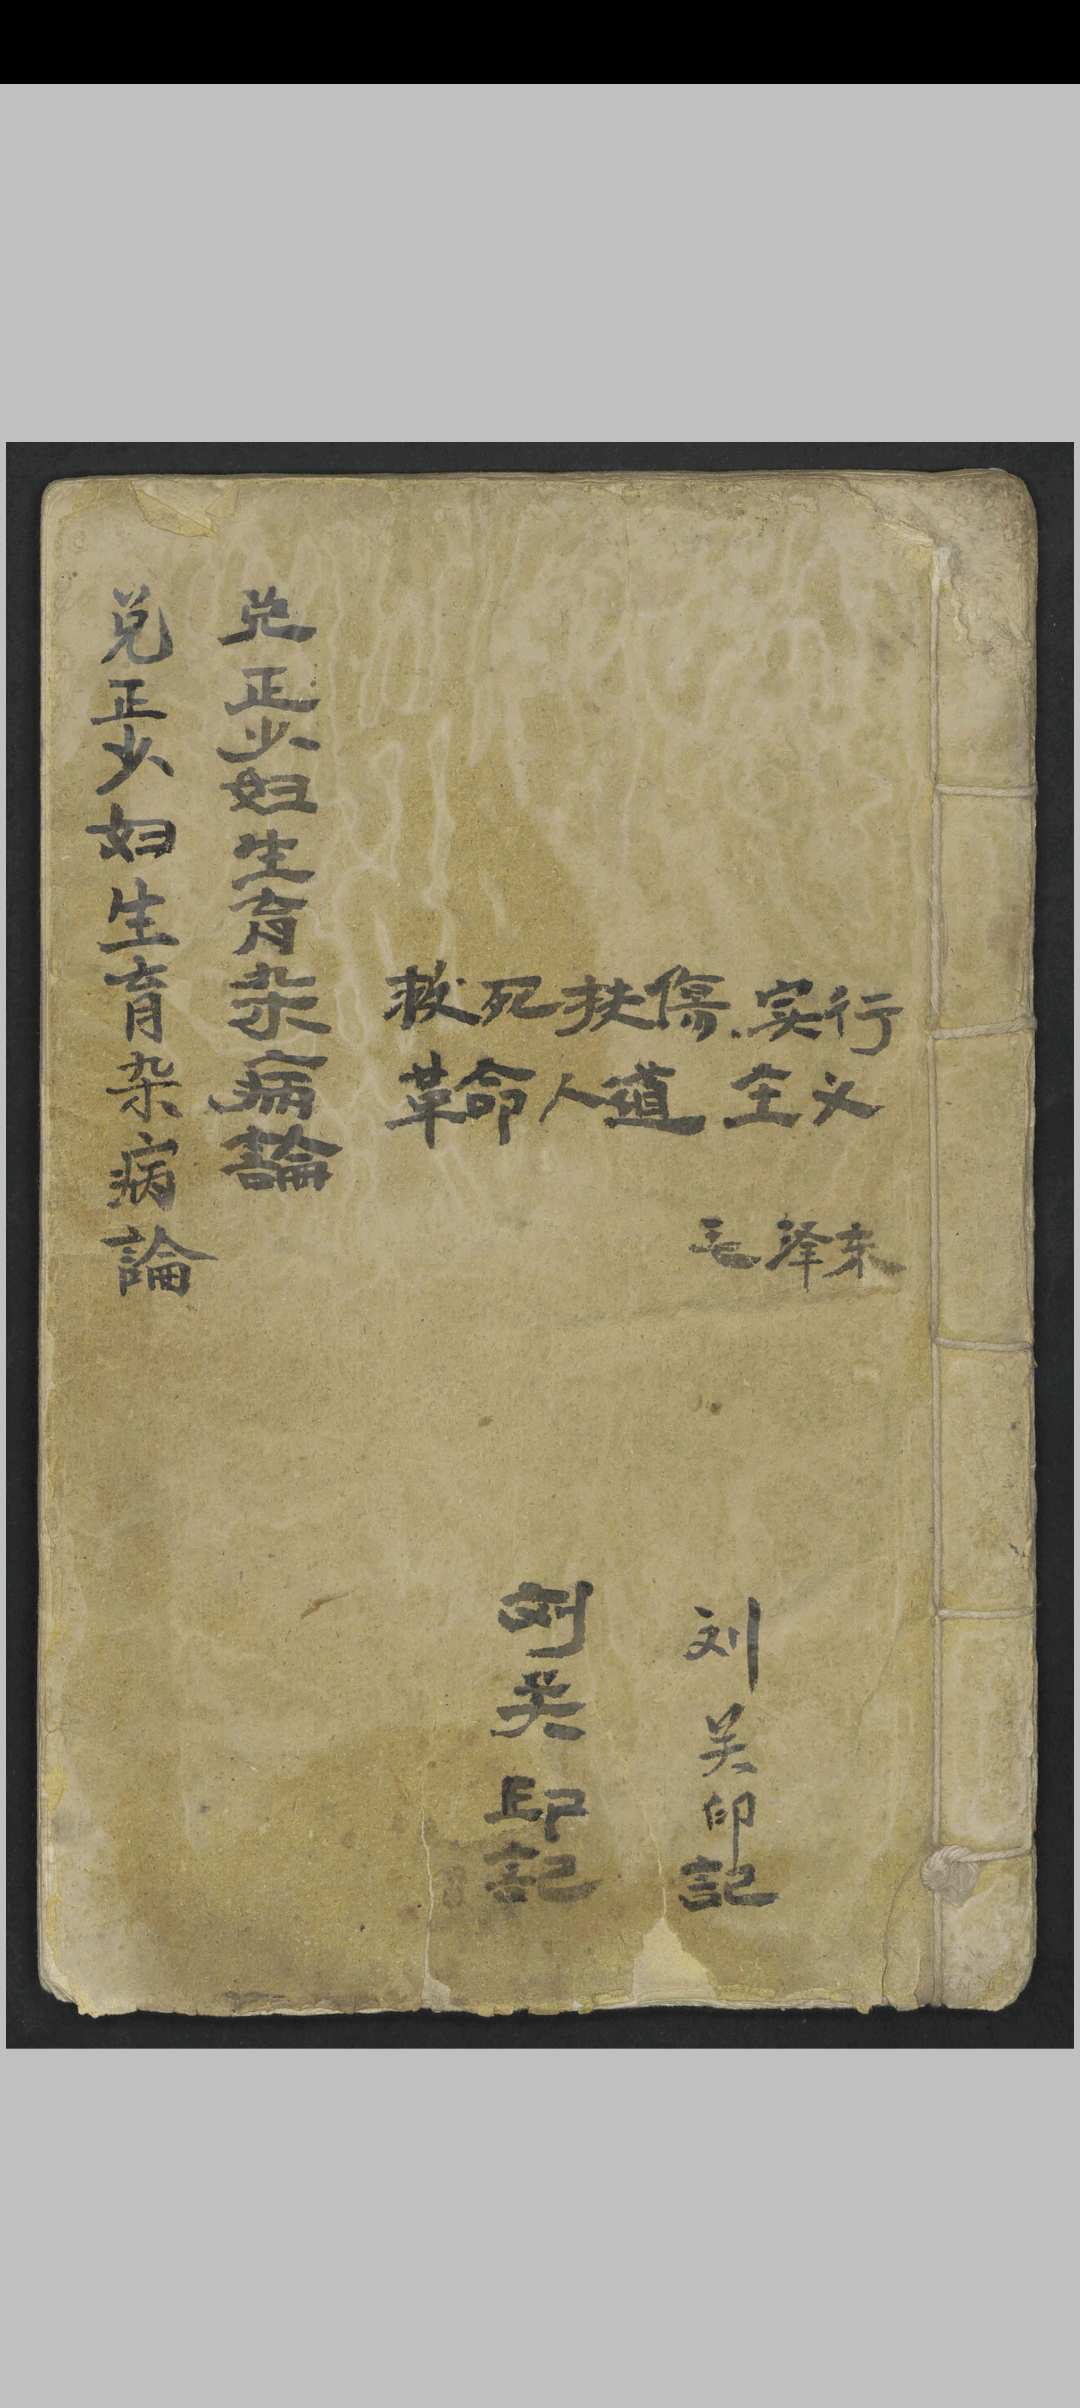 兑正少妇生育杂病論
兑正少妇生育杂病論
救死扶傷.实行
革命人道主义
毛泽东
刘关印記
刘关印記